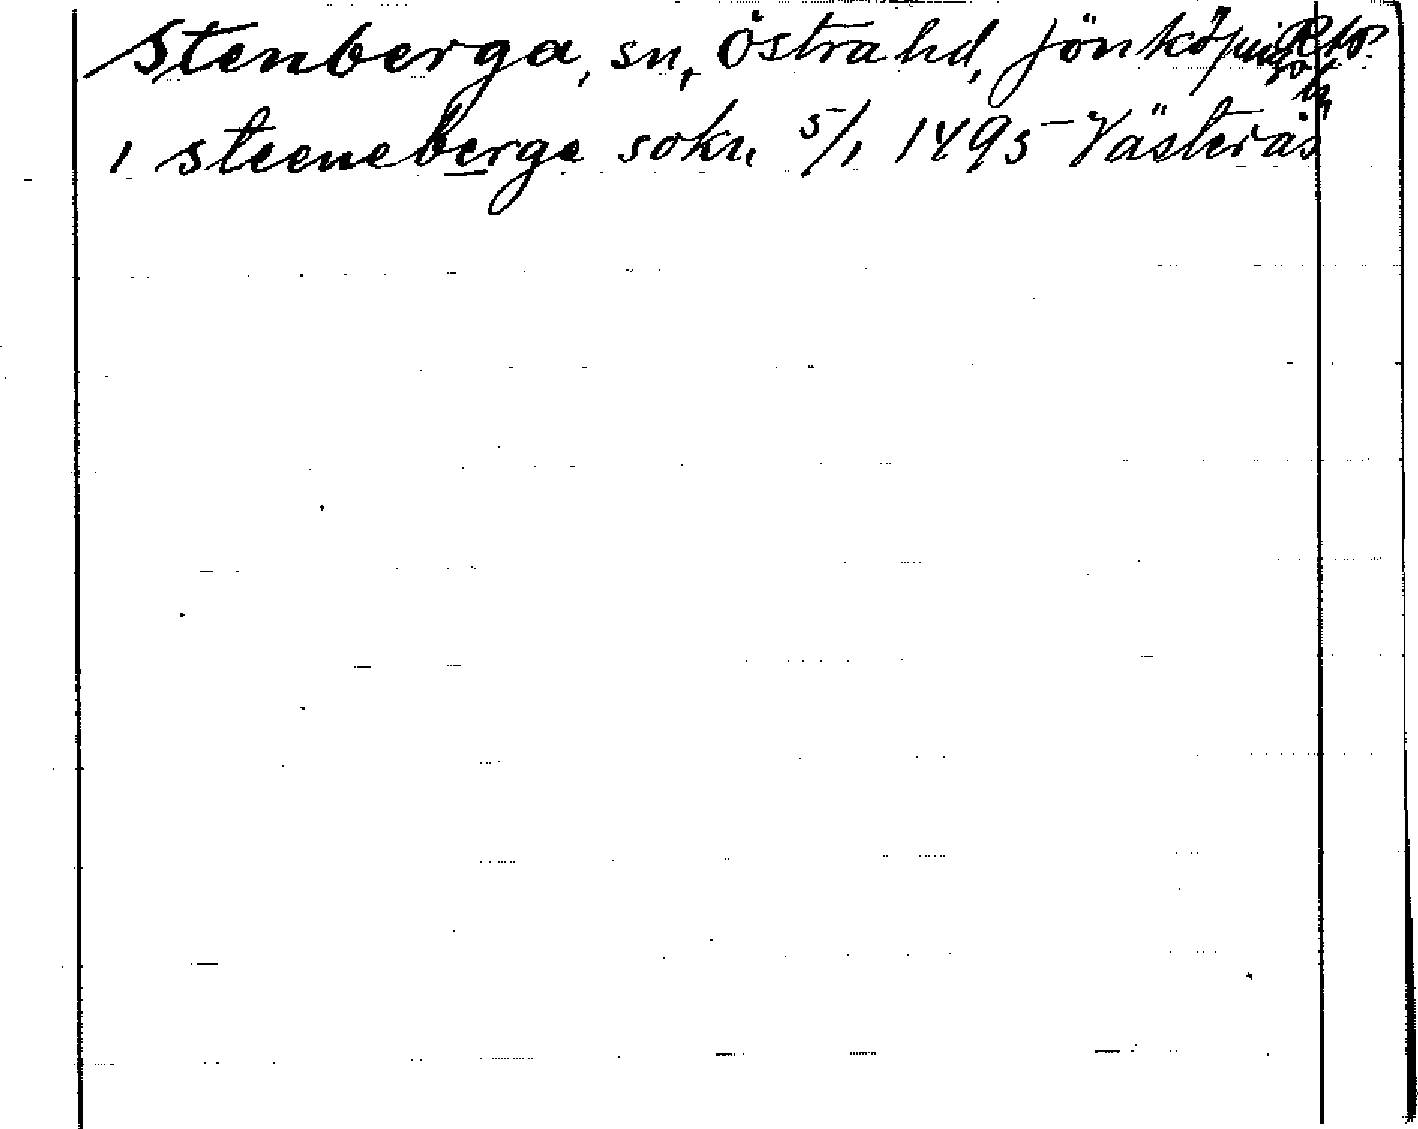 Stenberga, sn, Östra hd, Jönköpings
i steeneberge sokn 5/1 1495 Västerås